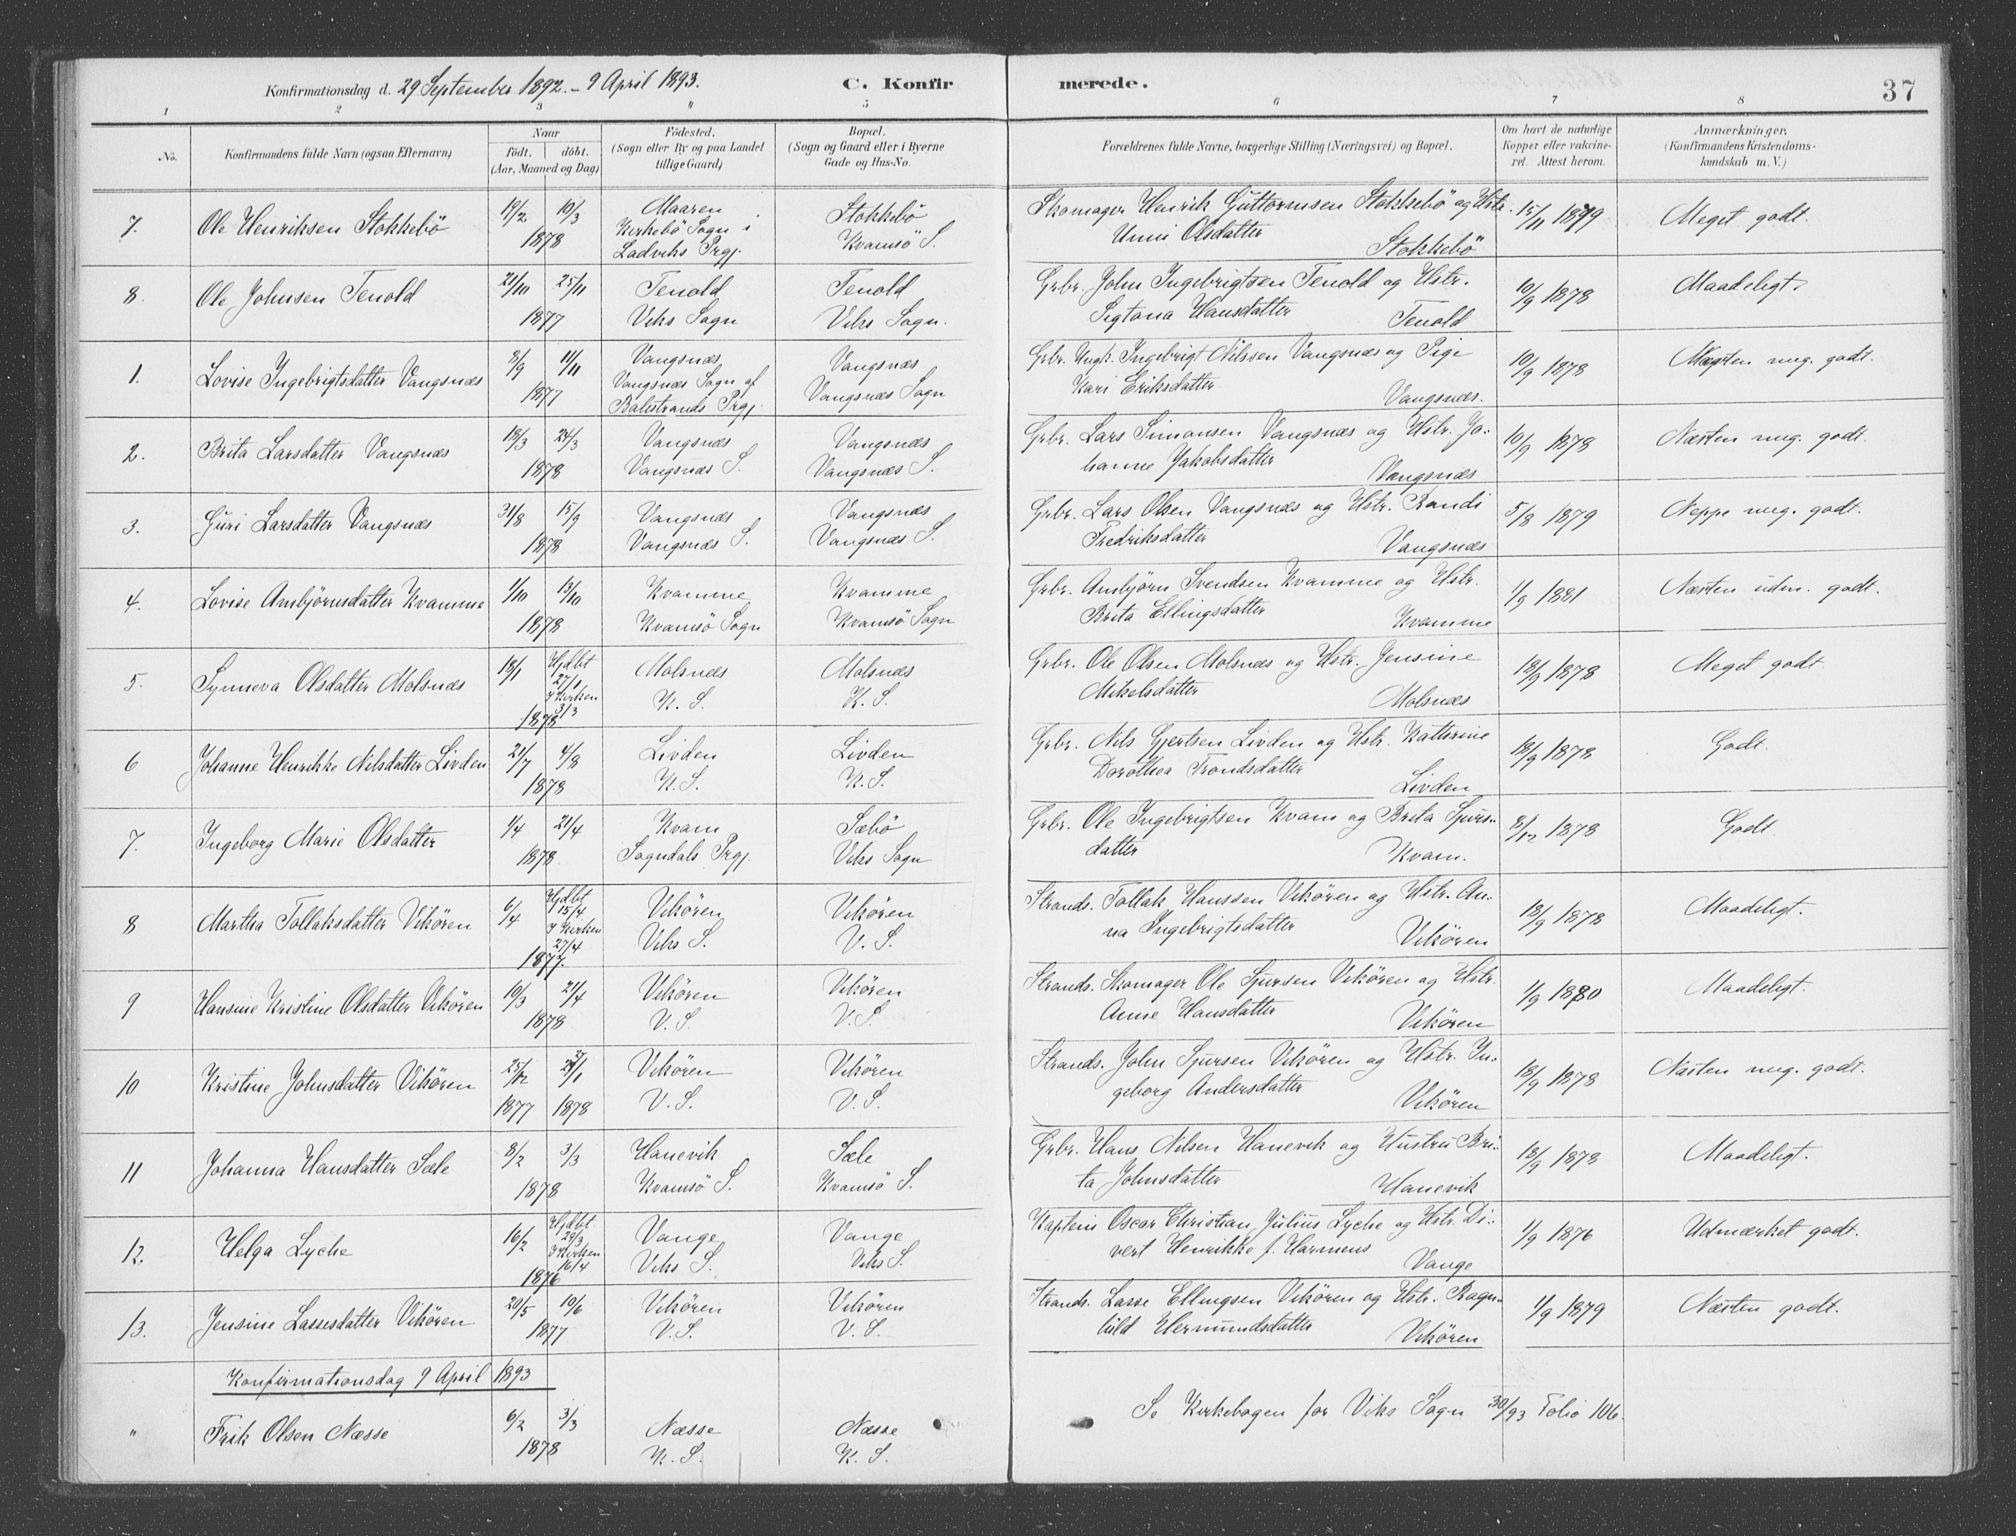 Konfirmationsdag d. 29 September 1892. - 9 April 1893. C. Konfirmerede. 37
1 2 3 4 5 6 7 8
No. Konfirmandens fulde Navn (ogsaa Efternavn) Naar født. døbt. (Aar, Maaned og Dag) Fødested. (Sogn eller By og paa Landet tillige Gaard) Bopæl. (Sogn og Gaard eller i Byerne Gade og Hus-No. Forældrenes fulde Navne, borgerlige Stilling (Næringsvei) og Bopæl. Om havt de naturlige Kopper eller vakcineret. Attest herom. Anmærkninger. (Konfirmandens Kristendomskundskab m. V.)
7. Ole Henriksen Stokkebö 19/2 10/3 1878 Maaren Kirkebö Sogn i Ladviks Prgj. Stokkebö Kvamsö S. Skomager Henrik Guttormsen Stokkebö og Hstr. Unni Olsdatter Stokkebö 15/11 1879 Meget godt.
8. Ole Johnsen Tenold 21/10 25/11 1877 Tenold Viks Sogn Tenold Viks Sogn. Grbr. John Ingebrigtsen Tenold og Hstr. Sigtona Hansdatter Tenold 10/9 1878 Maadeligt.
1. Lovise Ingebrigtsdatter Vangsnæs 8/9 11/11 1877 Vangsnæs, Vangsnæs Sogn af Balestrands Prgj. Vangsnæs Vangsnæs Sogn Grbr. Ungk. Ingebrigt Nilssen Vangsnæs og Pige Kari Eriksdatter Vangsnæs. 10/9 1878 Næsten meg. godt.
2. Brita Larsdatter Vangsnæs 18/3 24/3 1878 Vangsnæs Vangsnæs S. Vangsnæs Vangsnæs S. Grbr. Lars Simonsen Vangsnæs og Hstr. Johanne Jakobsdatter Vangsnæs 10/9 1878 Næsten meg. godt.
3. Guri Larsdatter Vangsnæs 31/8 15/9 1878 Vangsnæs Vangsnæs S. Vangsnæs Vangsnæs S. Grbr. Lars Olsen Vangsnæs og Hstr. Randi Fredriksdatter Vangsnæs 5/8 1879 Neppe meg. godt.
4. Lovise Ambjörnsdatter Kvamme 1/10 13/10 1878 Kvamme Kvamsö Sogn Kvamme Kvamsö Sogn Grbr. Ambjörn Svendsen Kvamme og Hstr. Brita Ellingsdatter Kvamme 1/9 1881 Næsten udm. godt.
5. Synneva Olsdatter Molsnæs 18/1 Hjdbt 27/1 i Kirken 3/3 1878 Molsnæs K. S. Molsnæs K. S. Grbr. Ole Olsen Molsnæs og Hstr. Jensine Mikelsdatter Molsnæs 18/9 1878 Meget godt
6 Johanne Henrikke Nilsdatter Livden 21/7 4/8 1878 Livden K. S. Livden K. S. Grbr. Nils Gjertsen Livden og Hstr. Kathrine Dorothea Trondsdatter Livden 18/9 1878 Godt.
7. Ingeborg Marie Olsdatter 1/4 21/4 1878 Kvam Sogndals Prgj. Sæbö Viks Sogn Grbr. Ole Ingebrigtsen Kvam og Brita Sjursdatter Kvam. 8/12 1878 Godt.
8 Martha Tollaksdatter Vikören 6/4 Hjdbt 15/4 i Kirken 27/4 1877. Vikören Viks S. Vikören V. S. Strands. Tollak Hanssen Vikören og Hstr. Anna Ingebrigtsdatter Vikören 18/9 1878 Maadeligt.
9 Hansine Kristine Olsdatter Vikören 10/3 21/4 1878 Vikören V. S. Vikören V. S. Strands. Skomager Ole Sjursen Vikören og Hstr. Anne Hansdatter Vikören 1/9 1880 Maadeligt.
10 Kristine Johnsdatter Vikören 25/12 1877 /1 1878 Vikören V. S. Vikören V. S. Strands. John Sjursen Vikören og Hstr. Ingeborg Andersdatter Vikören 18/9 1878 Næsten meg. godt.
11 Johanna Hansdatter Sæle 8/2 3/3 1878 Hanevik Kvamsö S. Sæle Kvamsö S. Grbr. Hans Nilsen Hanevik og Hustru Brita Johnsdatter Hanevik 18/9 1878 Maadeligt.
12. Helga Lyche 16/2 Hjdbt 29/3 i Kirken 16/4 1876 Vange Viks S. Vange Viks S. Kaptein Oscar Christian Julius Lyche og Hstr. Divert Henrikke f. Harmens Vange 1/9 1876 Udmærket godt.
13. Jensine Lassesdatter Vikören 20/5 10/6 1877 Vikören V. S. Vikören V. S. Strands. Lasse Ellingsen Vikören og Hstr. Ragnhild Hermundsdatter Vikören 1/9 1879 Næsten godt.
Konfirmationsdag 9 April 1893
" Frik Olsen Næsse 6/2 3/3 1878 Næsse K. S. Næsse K. S. Se Kirkebogen for Viks Sogn 30/93 Folio 106.